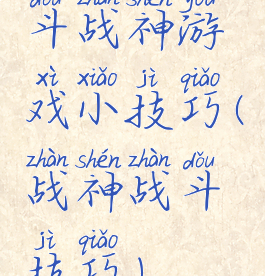 dòu zhàn shén yóu
斗战神游
xì xiǎo jì qiǎo
戏小技巧(
zhàn shén zhàn dǒu
战神战斗
jì qiǎo
技巧)